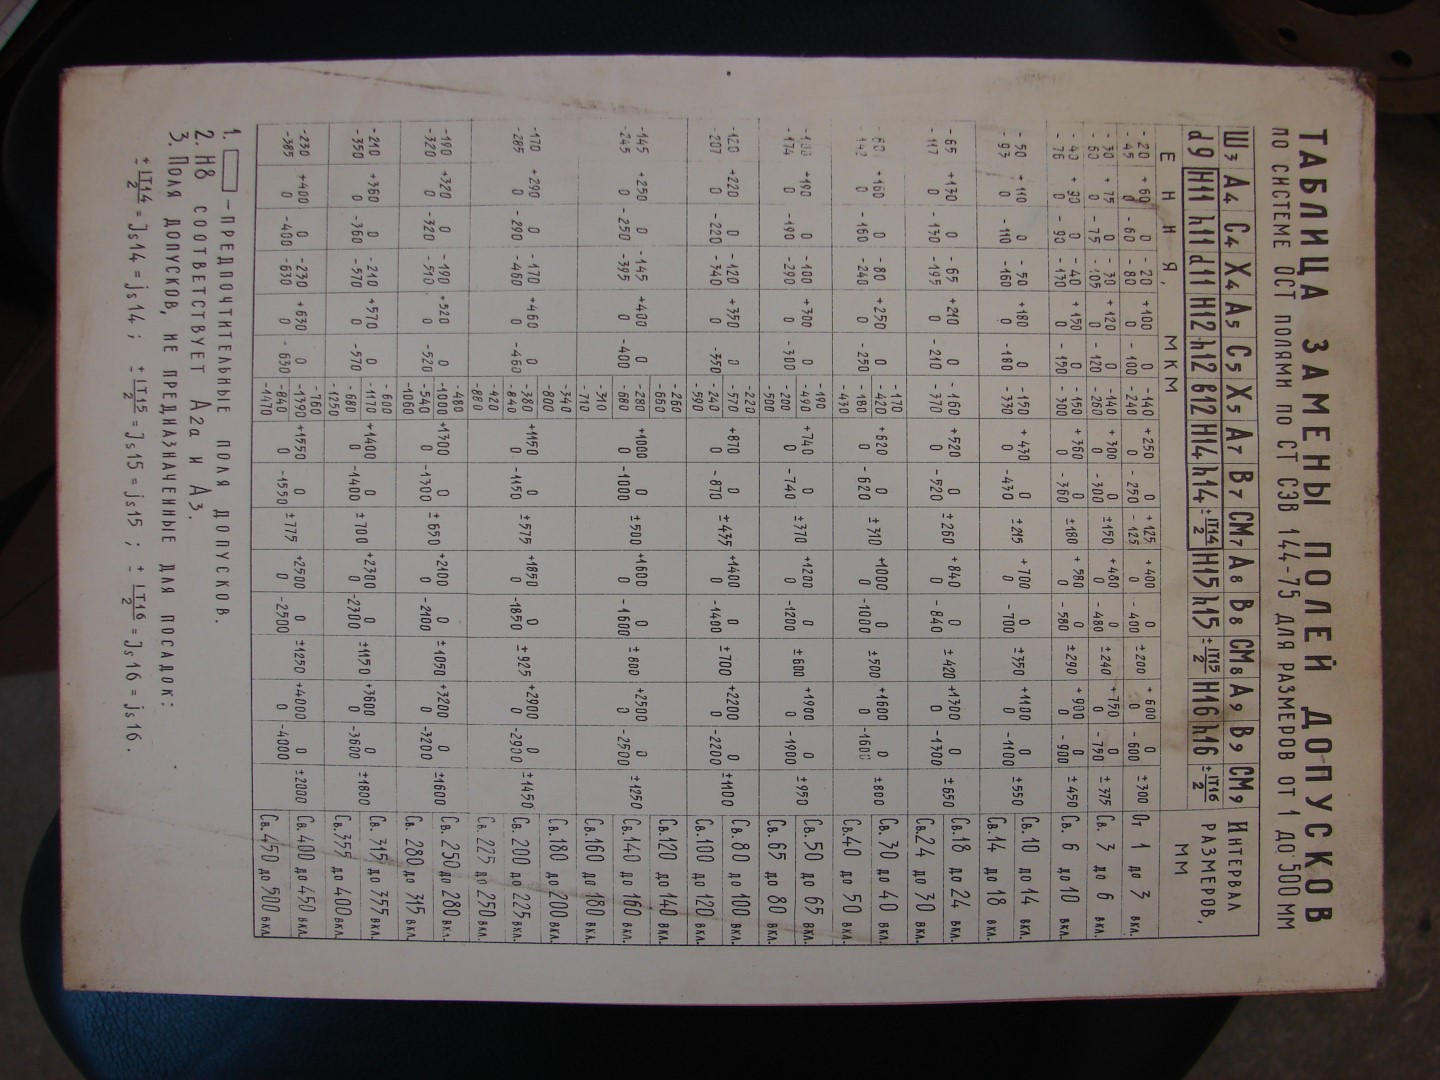 ТАБЛИЦА ЗАМЕНЫ ПОЛЕЙ ДОПУСКОВ
ПО СИСТЕМЕ ОСТ ПОЛЯМИ ПО СТ СЭВ 144-75 ДЛЯ РАЗМЕРОВ ОТ 1 ДО 500 ММ
Ш3 А4 С4 Х4 А5 С5 Х5 А7 В7 СМ7 А8 В8 СМ8 А9 В9 СМ9 ИНТЕРВАЛ
d9 H11 h11 d11 H12 h12 b12 H14 h14 ±IT14/2 H15 h15 ±IT15/2 H16 h16 ±IT16/2 РАЗМЕРОВ,
ЕННЯ, МКМ ММ
-20 +60 0 -20 +100 0 -140 +250 0 +125 +400 0 ±200 +600 0 ±300 От 1 до 3 вкл.
-45 0 -60 -80 0 -100 -240 0 -250 -125 0 -400 0 -600
-30 +75 0 -30 +120 0 -140 +300 0 ±150 +480 0 ±240 +750 0 ±375 Св. 3 до 6 вкл.
-60 0 -75 -105 0 -120 -260 0 -300 0 -480 0 -750
-40 +90 0 -40 +150 0 -150 +360 0 ±180 +580 0 ±290 +900 0 ±450 Св. 6 до 10 вкл.
-76 0 -90 -130 0 -150 -300 0 -360 0 -580 0 -900
-50 +110 0 -50 +180 0 -150 +430 0 ±215 +700 0 ±350 +1100 0 ±550 Св. 10 до 14 вкл.
-93 0 -110 -160 0 -180 -330 0 -430 0 -700 0 -1100 Св. 14 до 18 вкл.
-65 +130 0 -65 +210 0 -160 +520 0 ±260 +840 0 ±420 +1300 0 ±650 Св. 18 до 24 вкл.
-117 0 -130 -195 0 -210 -370 0 -520 0 -840 0 -1300 Св. 24 до 30 вкл.
-170
-80 +160 0 -80 +250 0 -420 +620 0 ±310 +1000 0 ±500 +1600 0 ±800 Св. 30 до 40 вкл.
-142 0 -160 -240 0 -250 -180 0 -620 0 -1000 0 -1600 Св. 40 до 50 вкл.
-430
-190
-100 +190 0 -100 +300 0 -490 +740 0 ±370 +1200 0 ±600 +1900 0 ±950 Св. 50 до 65 вкл.
-174 0 -190 -290 0 -300 -200 0 -740 0 -1200 0 -1900 Св. 65 до 80 вкл.
-500
-220
-120 +220 0 -120 +350 0 -570 +870 0 ±435 +1400 0 ±700 +2200 0 ±1100 Св. 80 до 100 вкл.
-207 0 -220 -340 0 -350 -240 0 -870 0 -1400 0 -2200 Св. 100 до 120 вкл.
-590
-260 Св. 120 до 140 вкл.
-660
-145 +250 0 -145 +400 0 -280 +1000 0 ±500 +1600 0 ±800 +2500 0 ±1250 Св. 140 до 160 вкл.
-245 0 -250 -395 0 -400 -680 0 -1000 0 -1600 0 -2500
-310 Св. 160 до 180 вкл.
-710
-340 Св. 180 до 200 вкл.
-800
-170 +290 0 -170 +460 0 -380 +1150 0 ±575 +1850 0 ±925 +2900 0 ±1450 Св. 200 до 225 вкл.
-285 0 -290 -460 0 -460 -840 0 -1150 0 -1850 0 -2900
-420 Св. 225 до 250 вкл.
-880
-480
-190 +320 0 -190 +520 0 -1000 +1300 0 ±650 +2100 0 ±1050 +3200 0 ±1600 Св. 250 до 280 вкл.
-320 0 -320 -510 0 -520 -540 0 -1300 0 -2100 0 -3200 Св. 280 до 315 вкл.
-1060
-600
-210 +360 0 -210 +570 0 -1170 +1400 0 ±700 +2300 0 ±1150 +3600 0 ±1800 Св. 315 до 355 вкл.
-350 0 -360 -570 0 -570 -680 0 -1400 0 -2300 0 -3600 Св. 355 до 400 вкл.
-1250
-760
-230 +400 0 -230 +630 0 -1390 +1550 0 ±775 +2500 0 ±1250 +4000 0 ±2000 Св. 400 до 450 вкл.
-385 0 -400 -630 0 -630 -840 0 -1550 0 -2500 0 -4000 Св. 450 до 500 вкл.
-1470
1. – ПРЕДПОЧТИТЕЛЬНЫЕ ПОЛЯ ДОПУСКОВ.
2. Н8 СООТВЕТСТВУЕТ А2а И А3.
3. ПОЛЯ ДОПУСКОВ, НЕ ПРЕДНАЗНАЧЕННЫЕ ДЛЯ ПОСАДОК:
± IT14/2 = Js14 = js14 ; ± IT15/2 = Js15 = js15 ; ± IT16/2 = Js16 = js16.